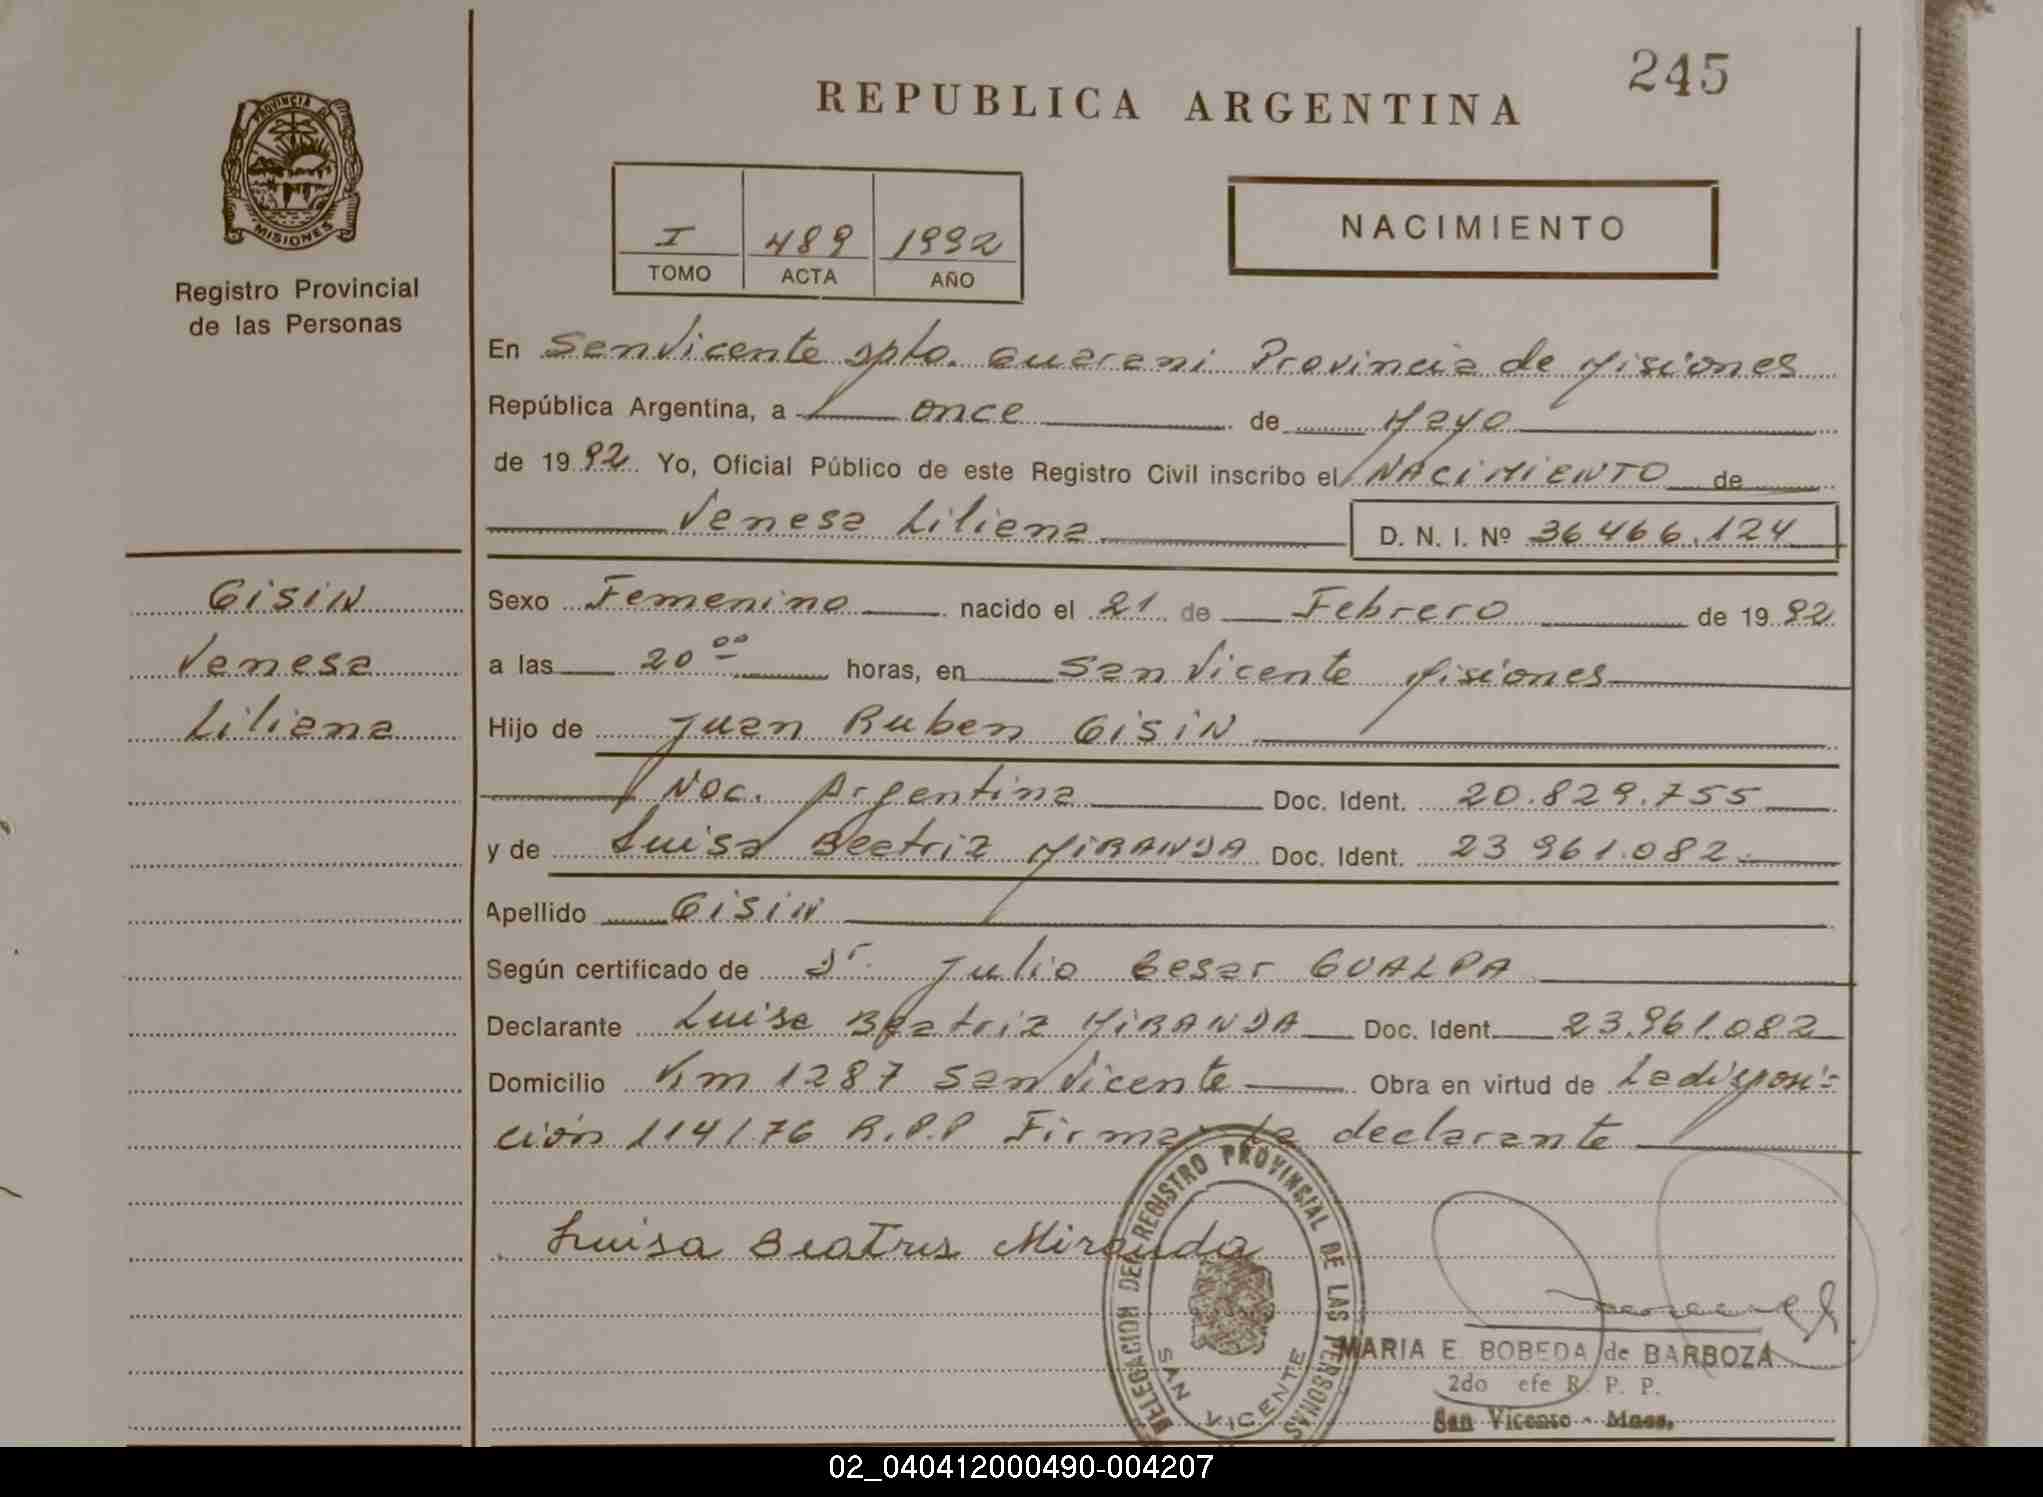 245
REPUBLICA ARGENTINA
PROVINCIA DE
MISIONES
Registro Provincial
de las Personas
I 489 1992
TOMO ACTA AÑO
NACIMIENTO
En San Vicente Dpto. Guarani Provincia de Misiones
República Argentina, a once de Mayo
de 1992 Yo, Oficial Público de este Registro Civil inscribo el NACIMIENTO de
Vanesa Liliana D. N. I. Nº 36.466.124
GISIN
Vanesa
Liliana
Sexo Femenino nacido el 21 de Febrero de 1992
a las 20 00 horas, en San Vicente Misiones
Hijo de Juan Ruben GISIN
Nac. Argentina Doc. Ident. 20.829.755
y de Luisa Beatriz MIRANDA Doc. Ident. 23.961.082.
Apellido GISIN
Según certificado de Dr. Julio Cesar GUALPA
Declarante Luisa Beatriz MIRANDA Doc. Ident. 23.961.082
Domicilio Km 1287 San Vicente Obra en virtud de La disposi-
ción 114/76 R.P.P Firma la declarante
Luisa Beatris Miranda
DELEGACION DEL REGISTRO PROVINCIAL DE LAS PERSONAS
SAN VICENTE
MARIA E. BOBEDA de BARBOZA
2do efe R. P. P.
San Vicente - Mnes.
02_040412000490-004207